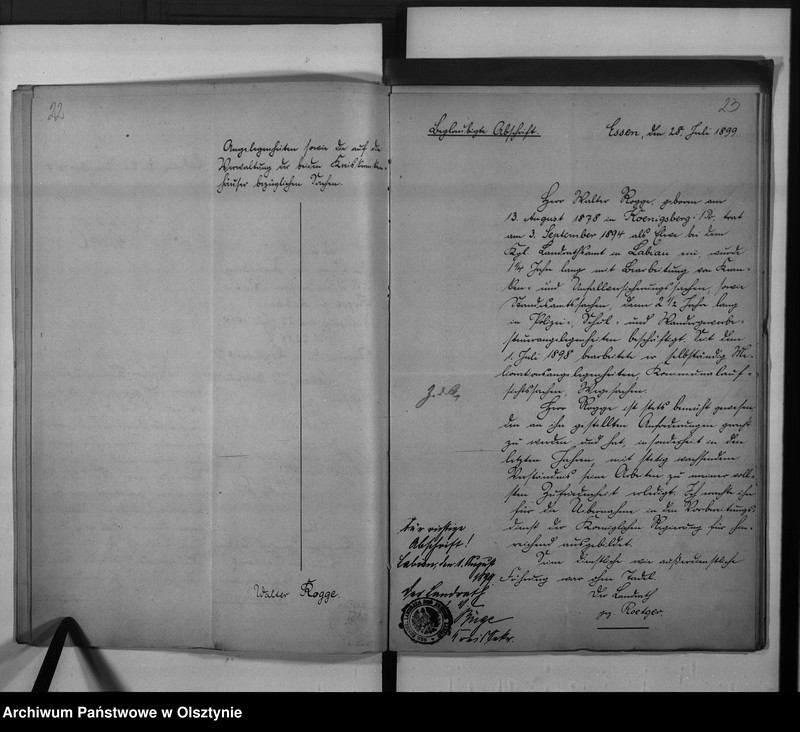 22
Angelegenheiten sowie die auf die
Verwaltung der beiden Kreiskranken-
häuser bezüglichen Sachen.
Walter Rogge.
23
Beglaubigte Abschrift.
Essen, den 28. Juli 1899
Herr Walter Rogge, geboren am
13. August 1878 in Koenigsberg i/Pr., trat
am 3. September 1894 als Eleve bei dem
Kgl. Landrathsamt in Labiau ein, wurde
1 1/4 Jahr lang mit Bearbeitung von Kran-
ken- und Unfallversicherungssachen, sowie
Standesamtssachen, dann 2 1/2 Jahr lang
in Polizei-, Schul- und Wandergewerbe-
steuerangelegenheiten beschäftigt. Seit dem
1. Juli 1898 bearbeitete er selbständig Me-
liorationsangelegenheiten, Kommunalauf-
sichtssachen, Wegesachen.
Herr Rogge ist stets bemüht gewesen
den an ihn gestellten Anforderungen gerecht
zu werden und hat, insonderheit in den
letzten Jahren, mit stetig wachsendem
Verständnis seine Arbeiten zu meiner voll-
sten Zufriedenheit erledigt. Ich erachte ihn
für die Uebernahme in den Vorbereitungs-
dienst der Königlichen Regierung für hin-
reichend ausgebildet.
Seine dienstliche wie außerdienstliche
Führung war ohne Tadel.
Der Landrath
gez. Roetger.
Z. d. A.
Für richtige
Abschrift!
Labiau, den 1. August
1899
Der Landrath
Kreissekr.
Archiwum Państwowe w Olsztynie